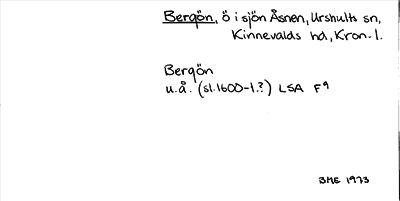 Bergön, ö i sjön Åsnen, Urshults sn,
Kinnevalds hd, Kron. l.
Bergön
u.å. (sl. 1600-t.?) LSA F9
BME 1973